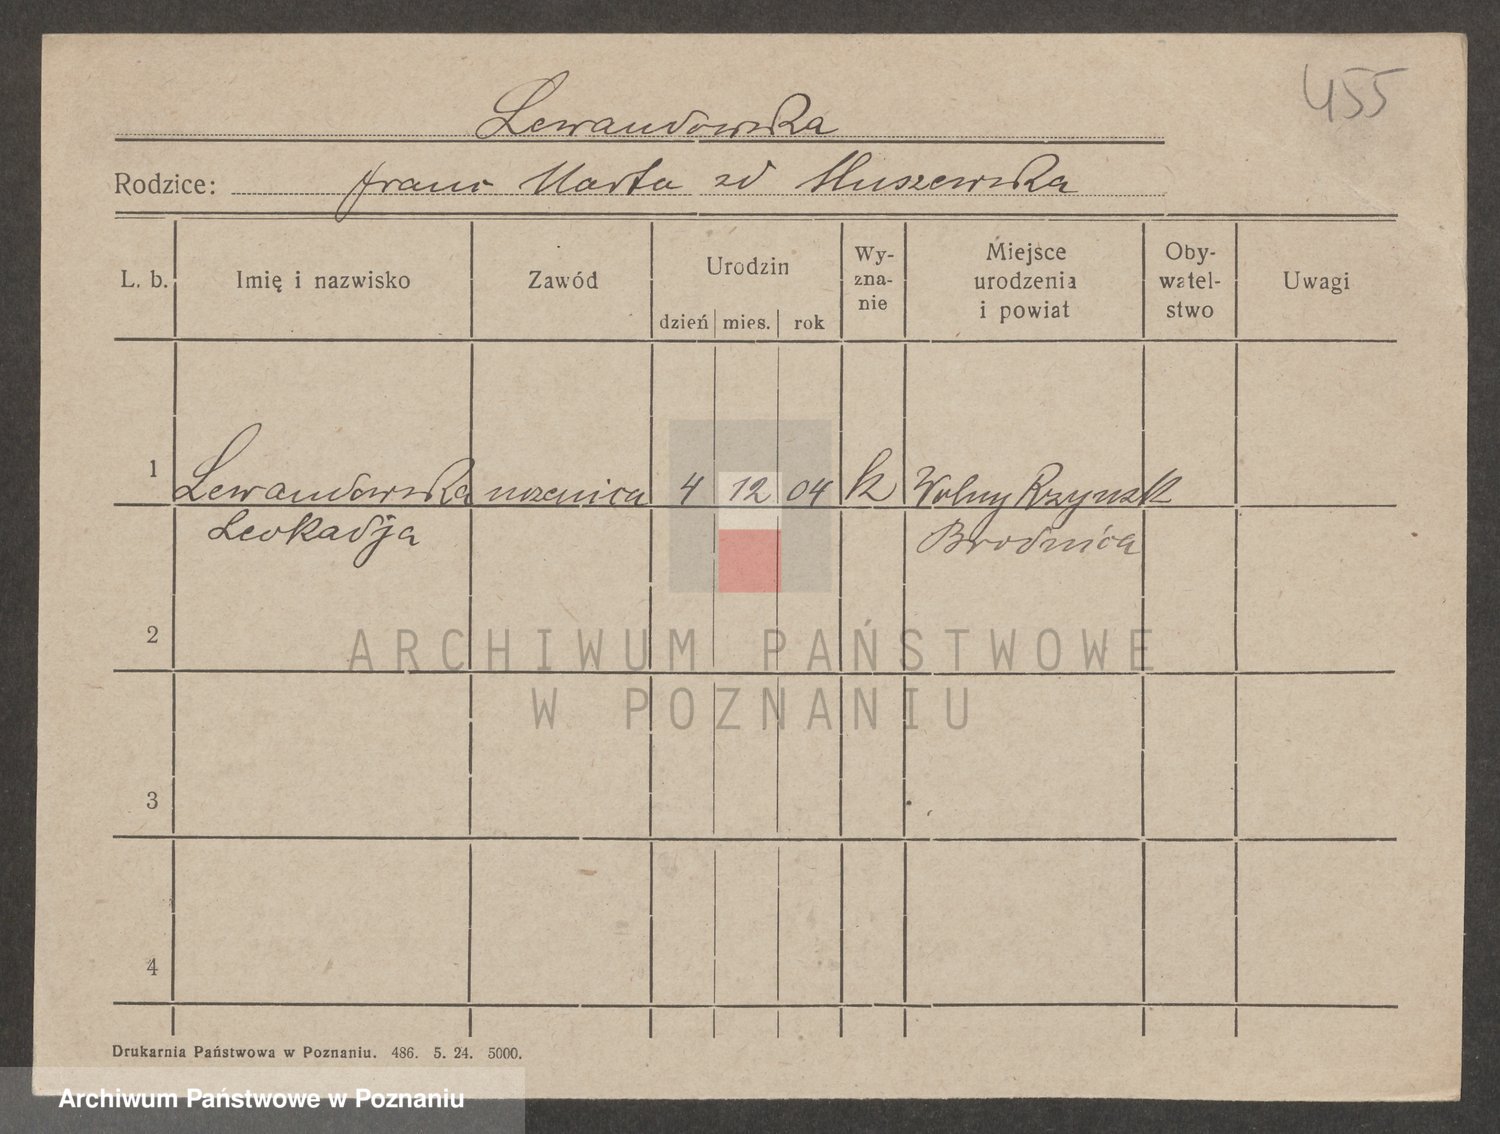 455
Lewandowska
Rodzice: franc Marta zd Muszewska
L. b. Imię i nazwisko Zawód Urodzin dzień mies. rok Wy-zna-nie Miejsce urodzenia i powiat Oby-watel-stwo Uwagi
1 Lewandowska uczenica 4 12 04 k Wolny
Leokadja Brodnica
2
3
4
ARCHIWUM PAŃSTWOWE
W POZNANIU
Drukarnia Państwowa w Poznaniu. 486. 5. 24. 5000.
Archiwum Państwowe w Poznaniu